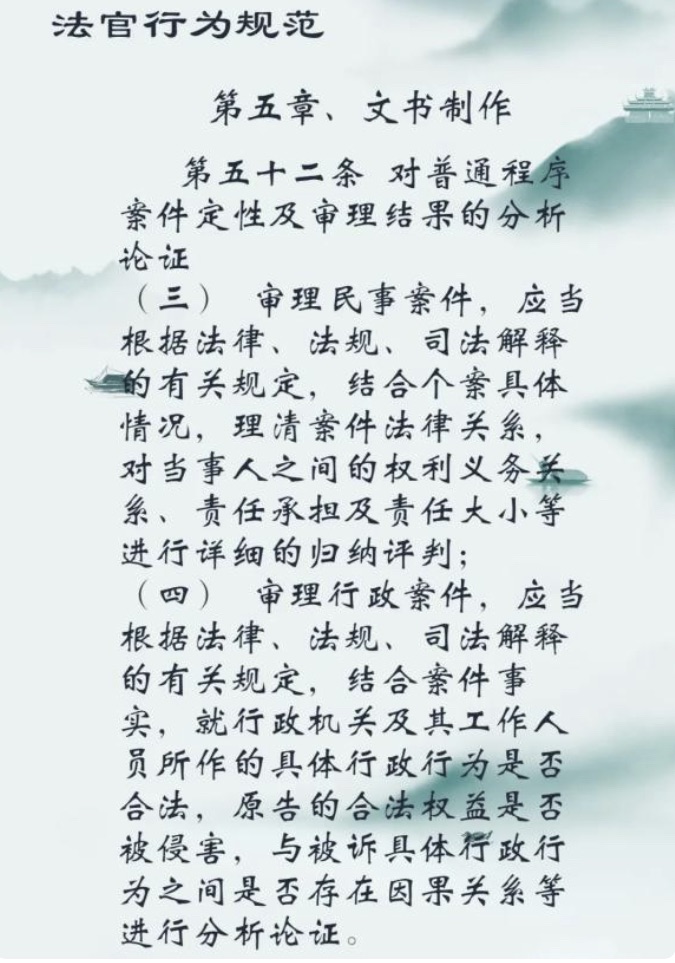 法官行为规范
第五章、文书制作
第五十二条 对普通程序
案件定性及审理结果的分析
论证
（三） 审理民事案件，应当
根据法律、法规、司法解释
的有关规定，结合个案具体
情况，理清案件法律关系，
对当事人之间的权利义务关
系、责任承担及责任大小等
进行详细的归纳评判；
（四） 审理行政案件，应当
根据法律、法规、司法解释
的有关规定，结合案件事
实，就行政机关及其工作人
员所作的具体行政行为是否
合法，原告的合法权益是否
被侵害，与被诉具体行政行
为之间是否存在因果关系等
进行分析论证。